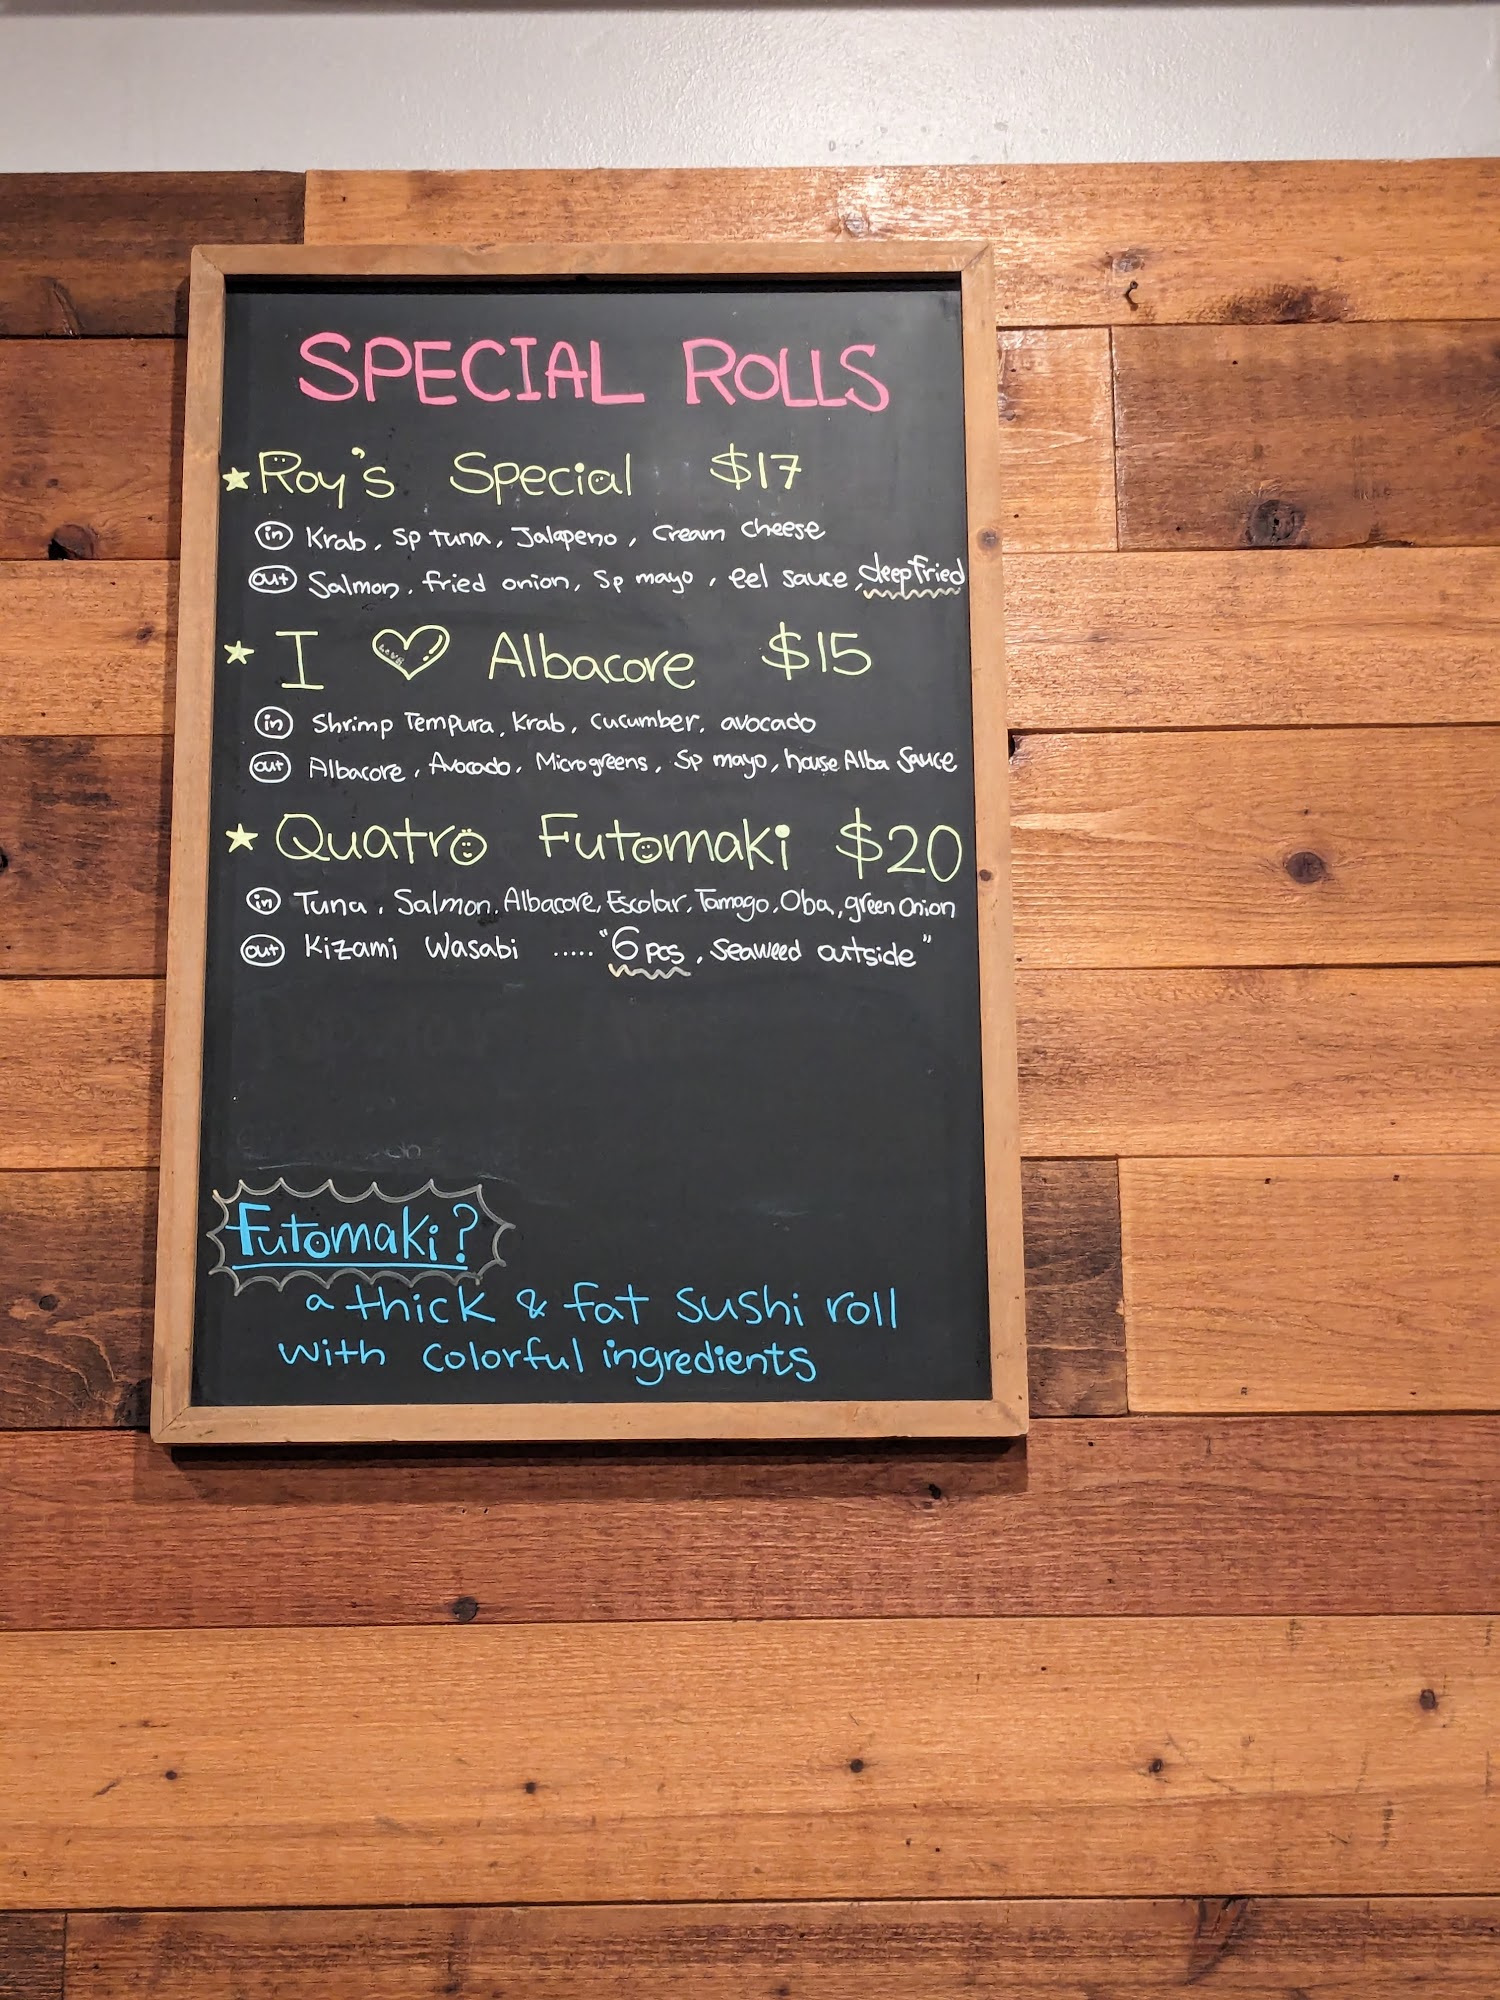 SPECIAL ROLLS
★ Roy's Special $17
in Krab, Sp tuna, Jalapeno, Cream cheese
out Salmon, fried onion, Sp mayo, eel sauce, deepfried
★ I ♡ Albacore $15
in Shrimp Tempura, Krab, cucumber, avocado
out Albacore, Avocado, Microgreens, Sp mayo, house Alba Sauce
★ Quatro Futomaki $20
in Tuna, Salmon, Albacore, Escolar, Tamago, Oba, green Onion
out Kizami Wasabi ..... "6 pcs, Seaweed outside"
Futomaki?
a thick & fat sushi roll
with colorful ingredients